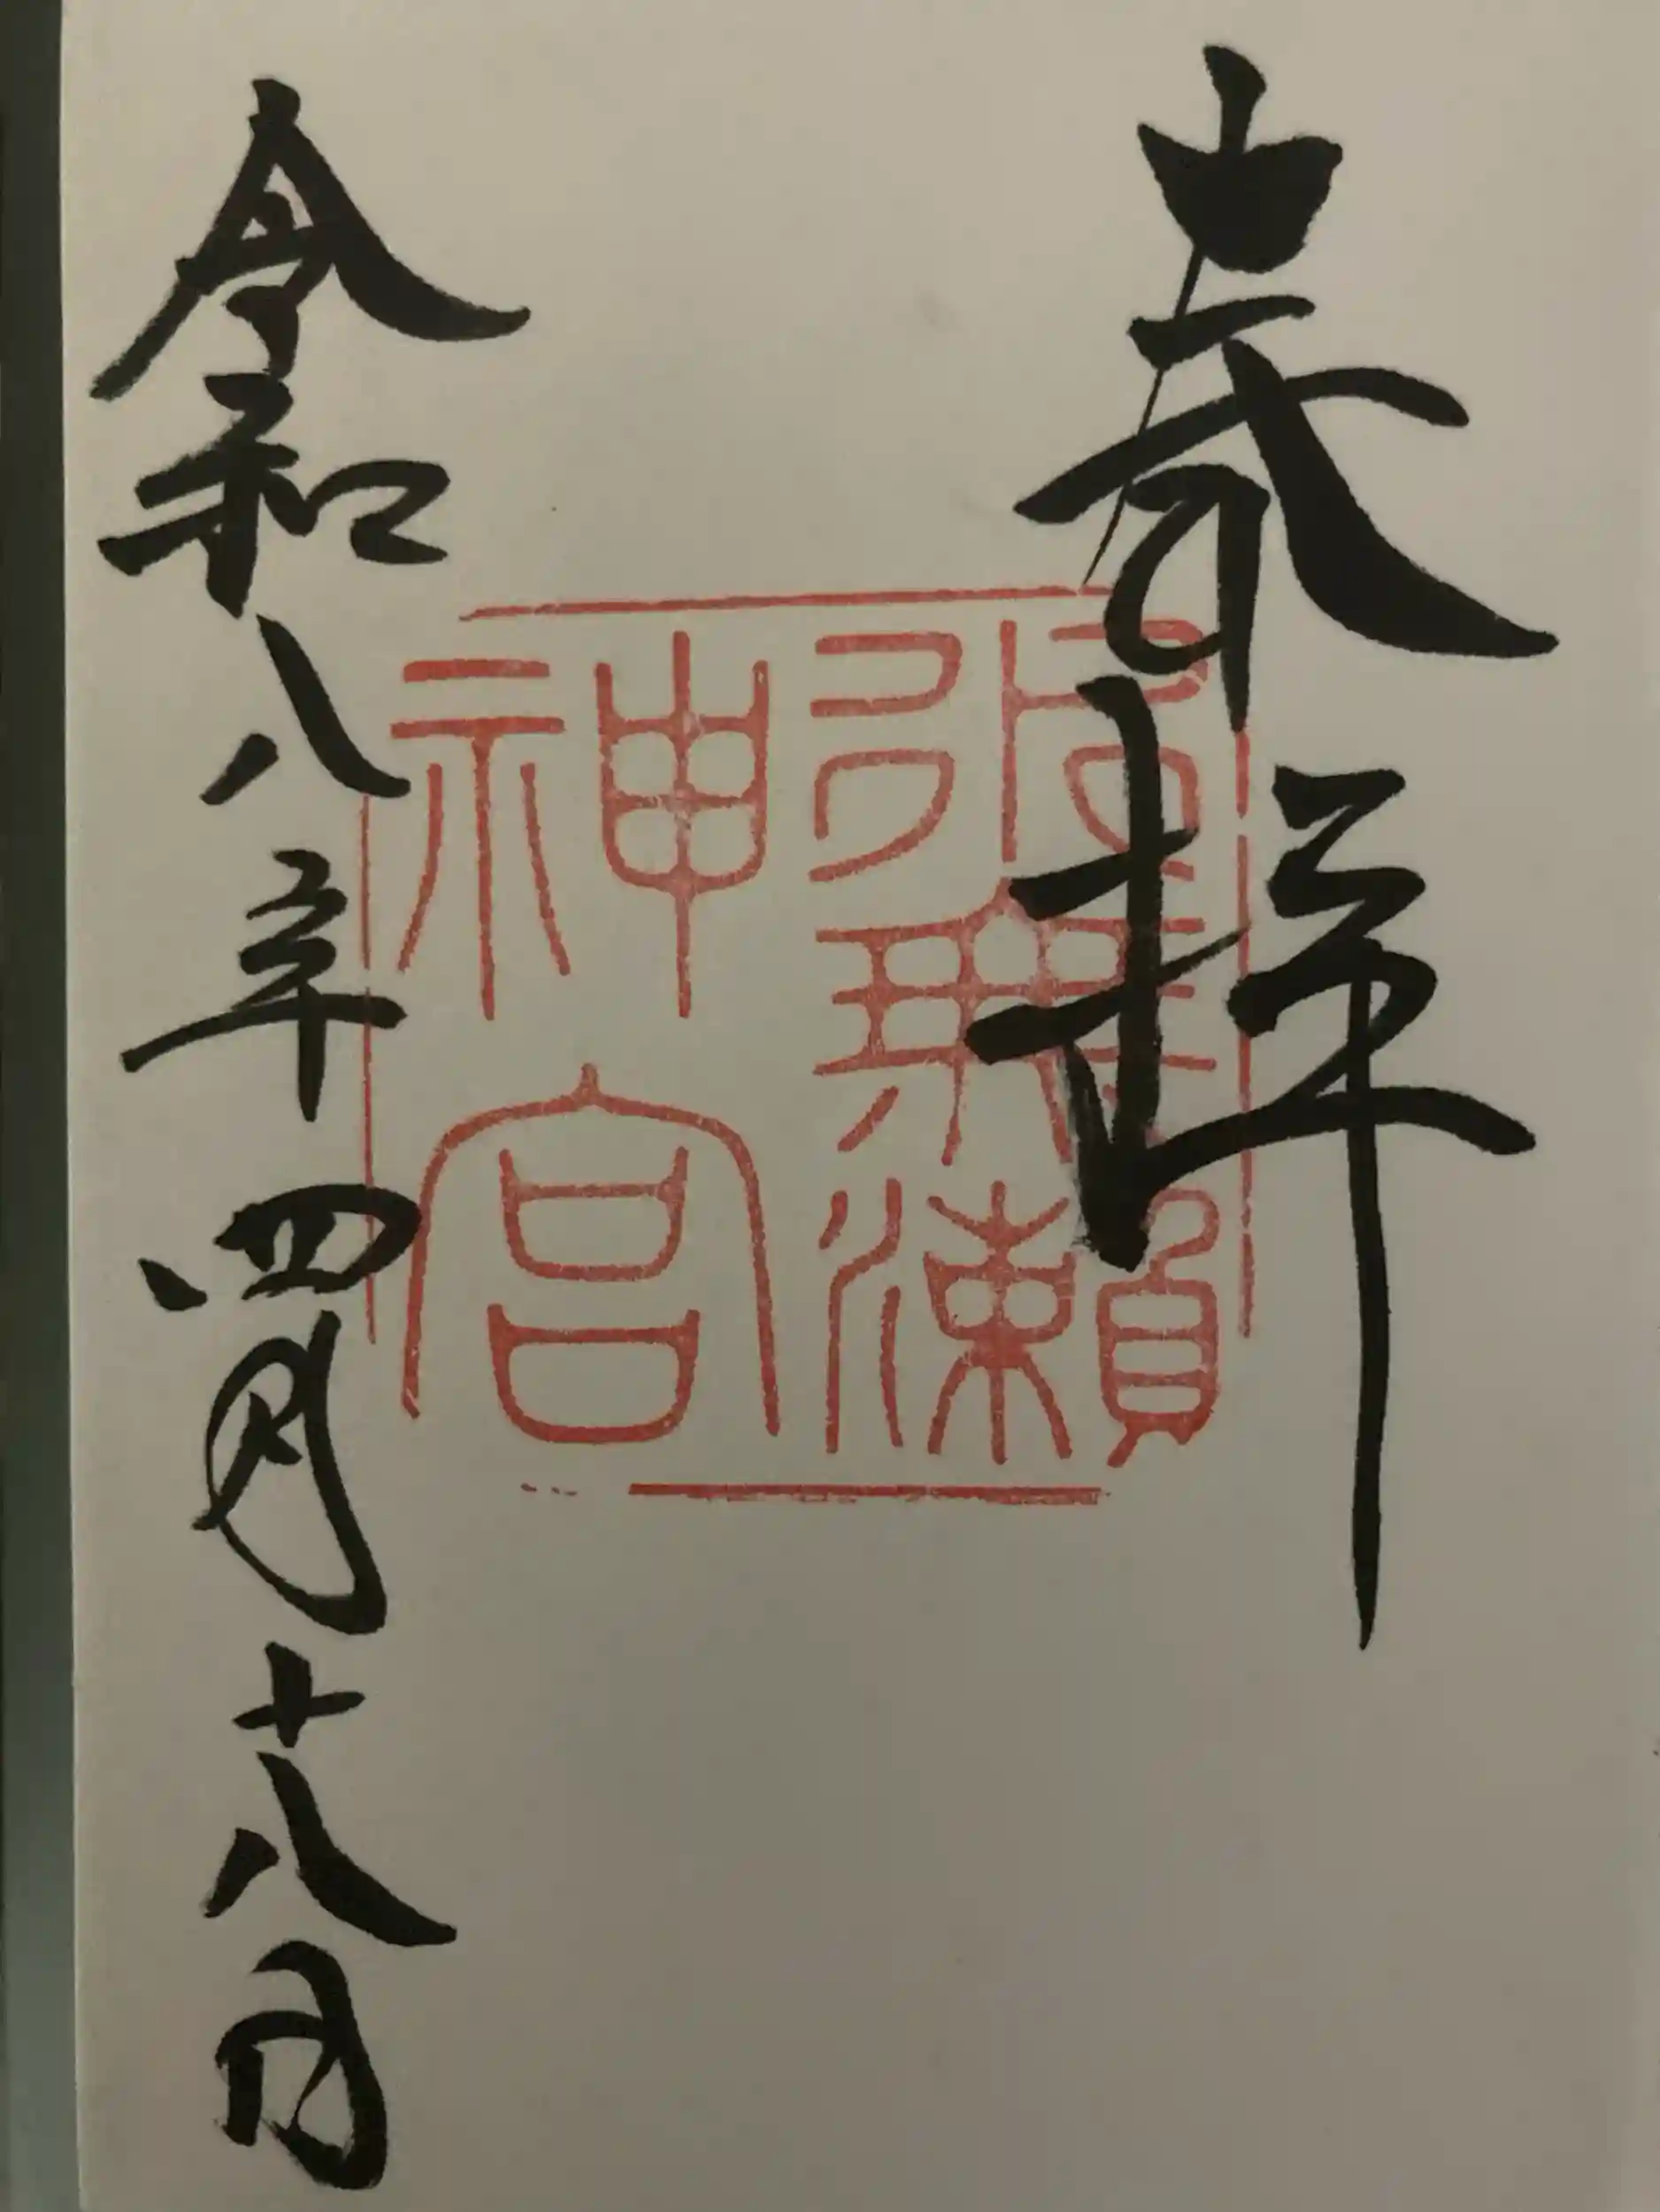 奉拝
水無瀬
神宮
令和八年四月十八日